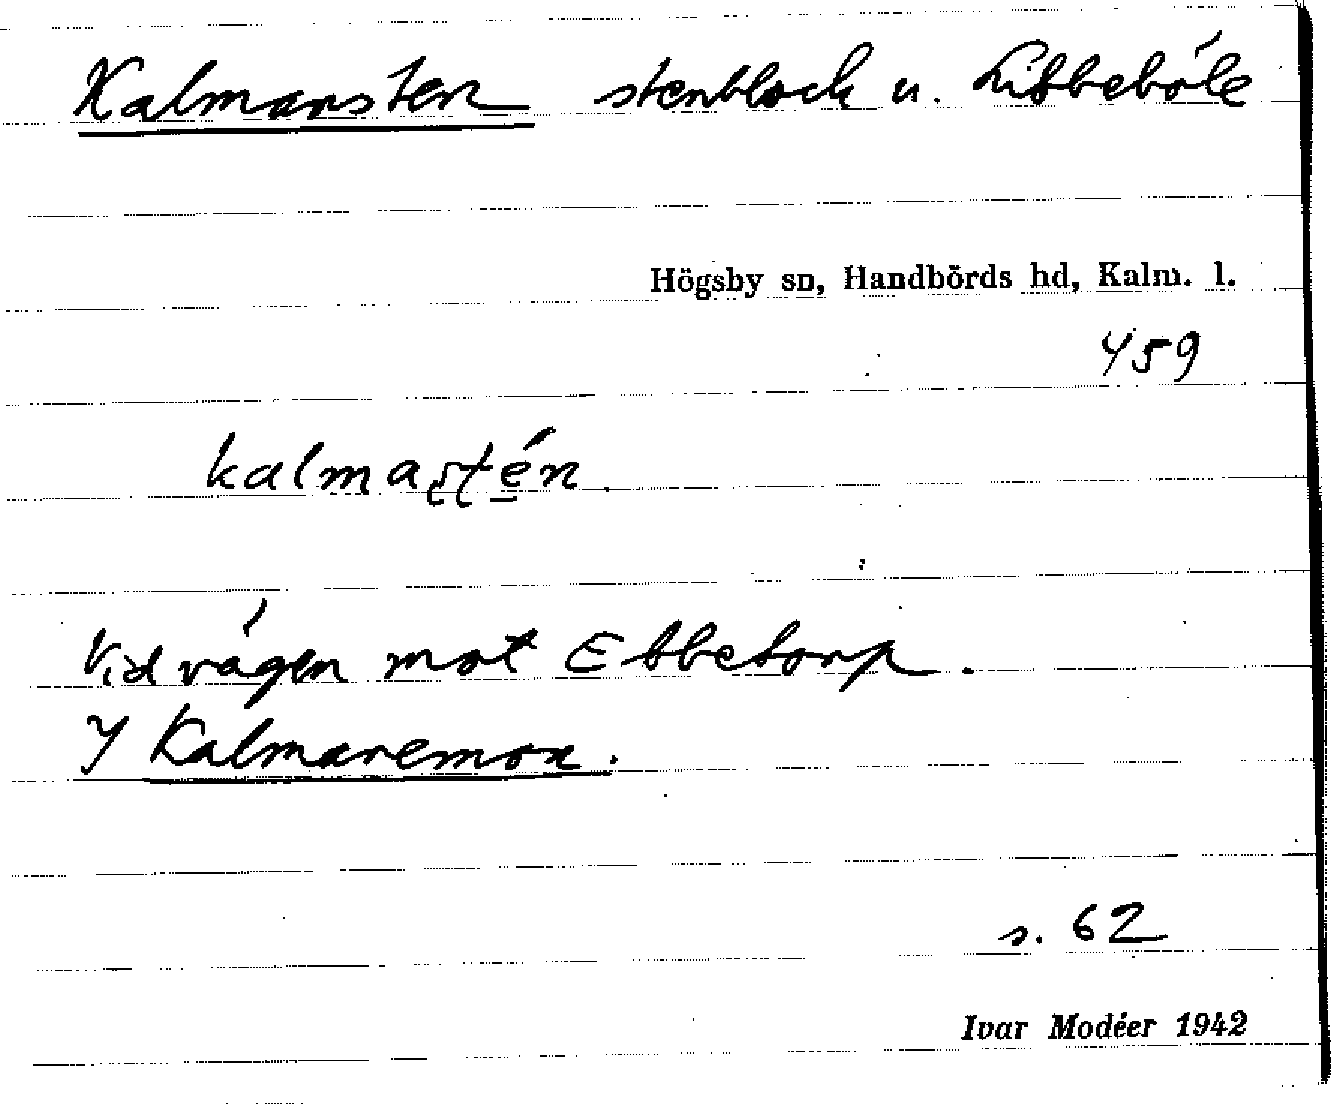 Kalmarsten stenblock u. Libbeböle
Högsby sn, Handbörds hd, Kalm. l.
459
kalmaştén
Vid vägen mot Ebbetorp.
Y Kalmaremon.
s. 62
Ivar Modéer 1942